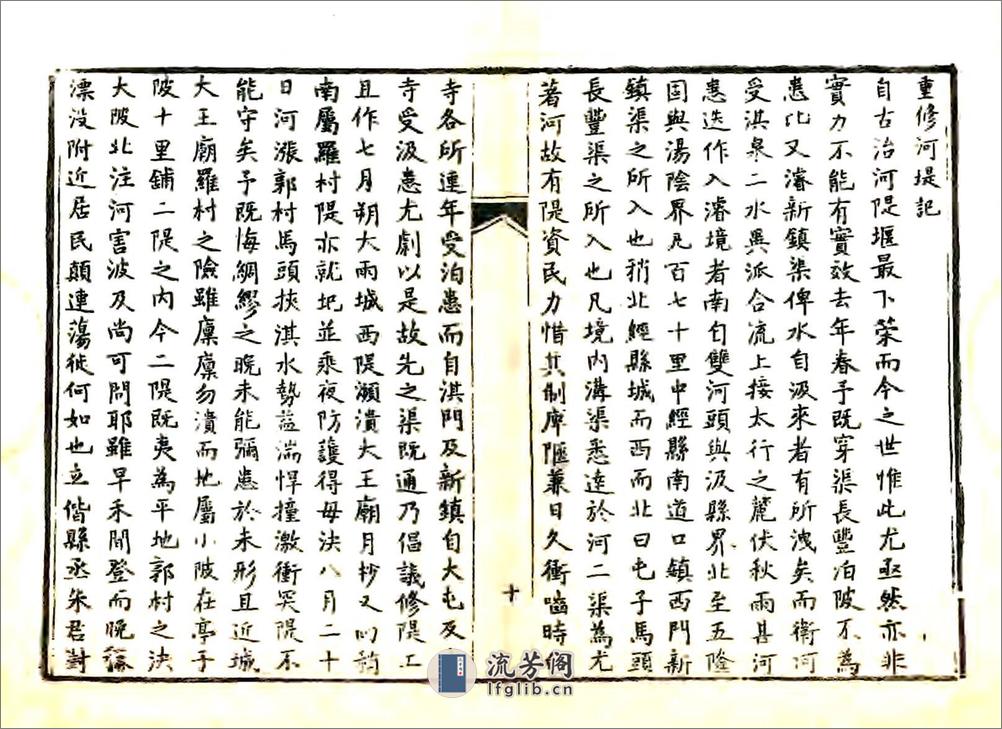 重修河堤記
自古治河隄堰最下策而今之世惟此尤亟然亦非
實力不能有實效去年春予既穿渠長豐泊陂不為
患比又濬新鎮渠俾水自汲來者有所洩矣而衛河
受淇泉二水異派合流上接太行之麓伏秋雨甚河
患迭作入濬境者南自雙河頭與汲縣界北至五隆
固與湯陰界凡百七十里中經縣南道口鎮西門新
鎮渠之所入也稍北經縣城而西而北曰屯子馬頭
長豐渠之所入也凡境內溝渠悉達於河二渠為尤
著河故有隄資民力惜其制庳陿兼日久衝嚙時
十
寺各所連年受泊患而自淇門及新鎮自大屯及
寺受汲患尤劇以是故先之渠既通乃倡議修隄工
且作七月朔大雨城西隄瀕潰大王廟月抄又以
南屬羅村隄亦就圮並乘夜防護得毋決八月二十
日河漲郭村馬頭挾淇水勢益湍悍撞激衝突隄不
能守矣予既悔綢繆之晚未能彌患於未形且近城
大王廟羅村之險雖廩廩勿潰而地屬小陂在亭子
陂十里鋪二隄之內今二隄既夷為平地郭村之決
大陂北注河害波及尚可問耶雖早禾間登而晚
漂沒附近居民顛連蕩徙何如也立偕縣丞朱君對
流芳阁
lfglib.cn